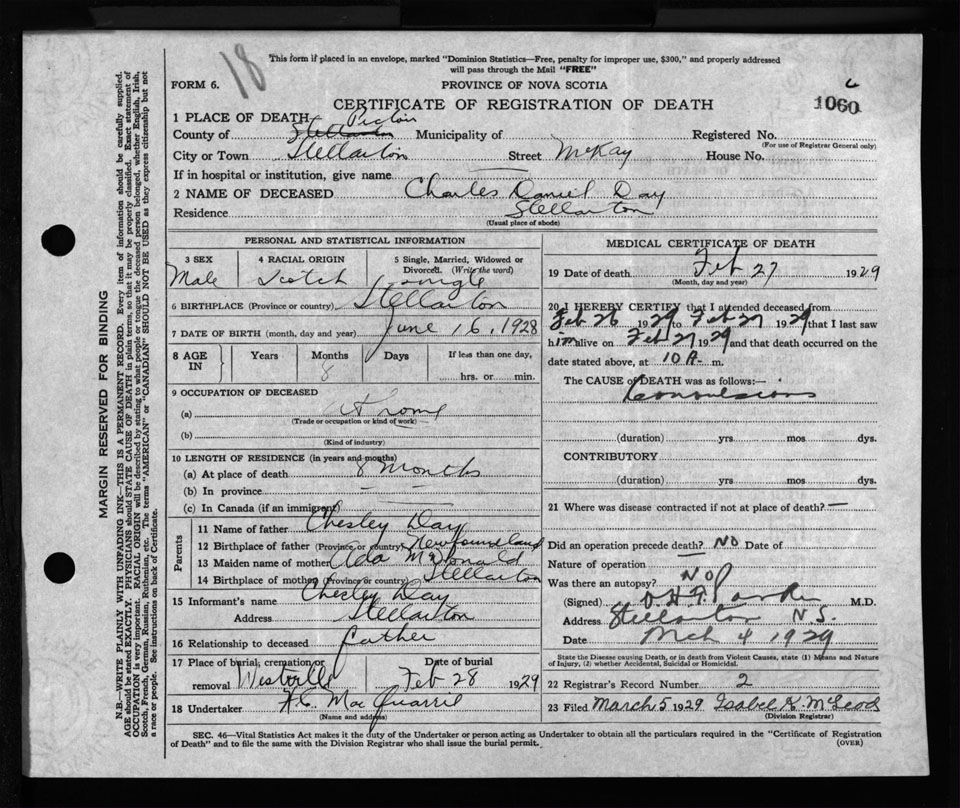 18
This form if placed in an envelope, marked "Dominion Statistics—Free, penalty for improper use, $300," and properly addressed
will pass through the Mail "FREE"
FORM 6.
PROVINCE OF NOVA SCOTIA
CERTIFICATE OF REGISTRATION OF DEATH
1060
1 PLACE OF DEATH Pictou
County of Stellarton Municipality of Registered No.
(For use of Registrar General only)
City or Town Stellarton Street McKay House No.
If in hospital or institution, give name —
2 NAME OF DECEASED Charles Daniel Day
Residence Stellarton
(Usual place of abode)
PERSONAL AND STATISTICAL INFORMATION
3 SEX 4 RACIAL ORIGIN 5 Single, Married, Widowed or
Divorced. (Write the word)
Male Scotch Single
6 BIRTHPLACE (Province or country) Stellarton
7 DATE OF BIRTH (month, day and year) June 16, 1928
8 AGE IN Years Months Days If less than one day,
8 hrs. or min.
9 OCCUPATION OF DECEASED
(a) At home
(Trade or occupation or kind of work)
(b)
(Kind of industry)
10 LENGTH OF RESIDENCE (in years and months)
(a) At place of death 8 months
(b) In province —
(c) In Canada (if an immigrant) —
Parents
11 Name of father Chesley Day
12 Birthplace of father (Province or country) Newfoundland
13 Maiden name of mother Ada McDonald
14 Birthplace of mother (Province or country) Stellarton
15 Informant's name Chesley Day
Address Stellarton
16 Relationship to deceased Father
17 Place of burial, cremation or Date of burial
removal Westville Feb 28 1929
18 Undertaker H.C. MacQuarrie
(Name and address)
MEDICAL CERTIFICATE OF DEATH
19 Date of death Feb 27 1929
(Month, day and year)
20 I HEREBY CERTIFY that I attended deceased from
Feb 26 1929 to Feb 27 1929 that I last saw
him alive on Feb 27 1929 and that death occurred on the
date stated above, at 10 A. m.
The CAUSE of DEATH was as follows:—
Convulsions
(duration) yrs mos dys.
CONTRIBUTORY
(duration) yrs. mos. dys.
21 Where was disease contracted if not at place of death? —
Did an operation precede death? NO Date of
Nature of operation —
Was there an autopsy? NO
(Signed) Parker M.D.
Address Stellarton N.S.
Date Mch 4 1929
State the Disease causing Death, or in death from Violent Causes, state (1) Means and Nature
of Injury, (2) whether Accidental, Suicidal or Homicidal.
22 Registrar's Record Number 2
23 Filed March 5 1929 Isabel G. McLeod
(Division Registrar)
SEC. 46—Vital Statistics Act makes it the duty of the Undertaker or person acting as Undertaker to obtain all the particulars required in the "Certificate of Registration
of Death" and to file the same with the Division Registrar who shall issue the burial permit.
(OVER)
MARGIN RESERVED FOR BINDING
N.B.—WRITE PLAINLY WITH UNFADING INK—THIS IS A PERMANENT RECORD. Every item of information should be carefully supplied.
AGE should be stated EXACTLY. PHYSICIANS should STATE CAUSE OF DEATH in plain terms, so that it may be properly classified. Exact statement of
OCCUPATION is very important. RACIAL ORIGIN will be described by stating to what people or tongue the deceased person belonged, whether English, Irish,
Scotch, French, German, Russian, Ruthenian, etc. The terms "AMERICAN" or "CANADIAN" SHOULD NOT BE USED as they express citizenship but not
a race or people. See instructions on back of Certificate.